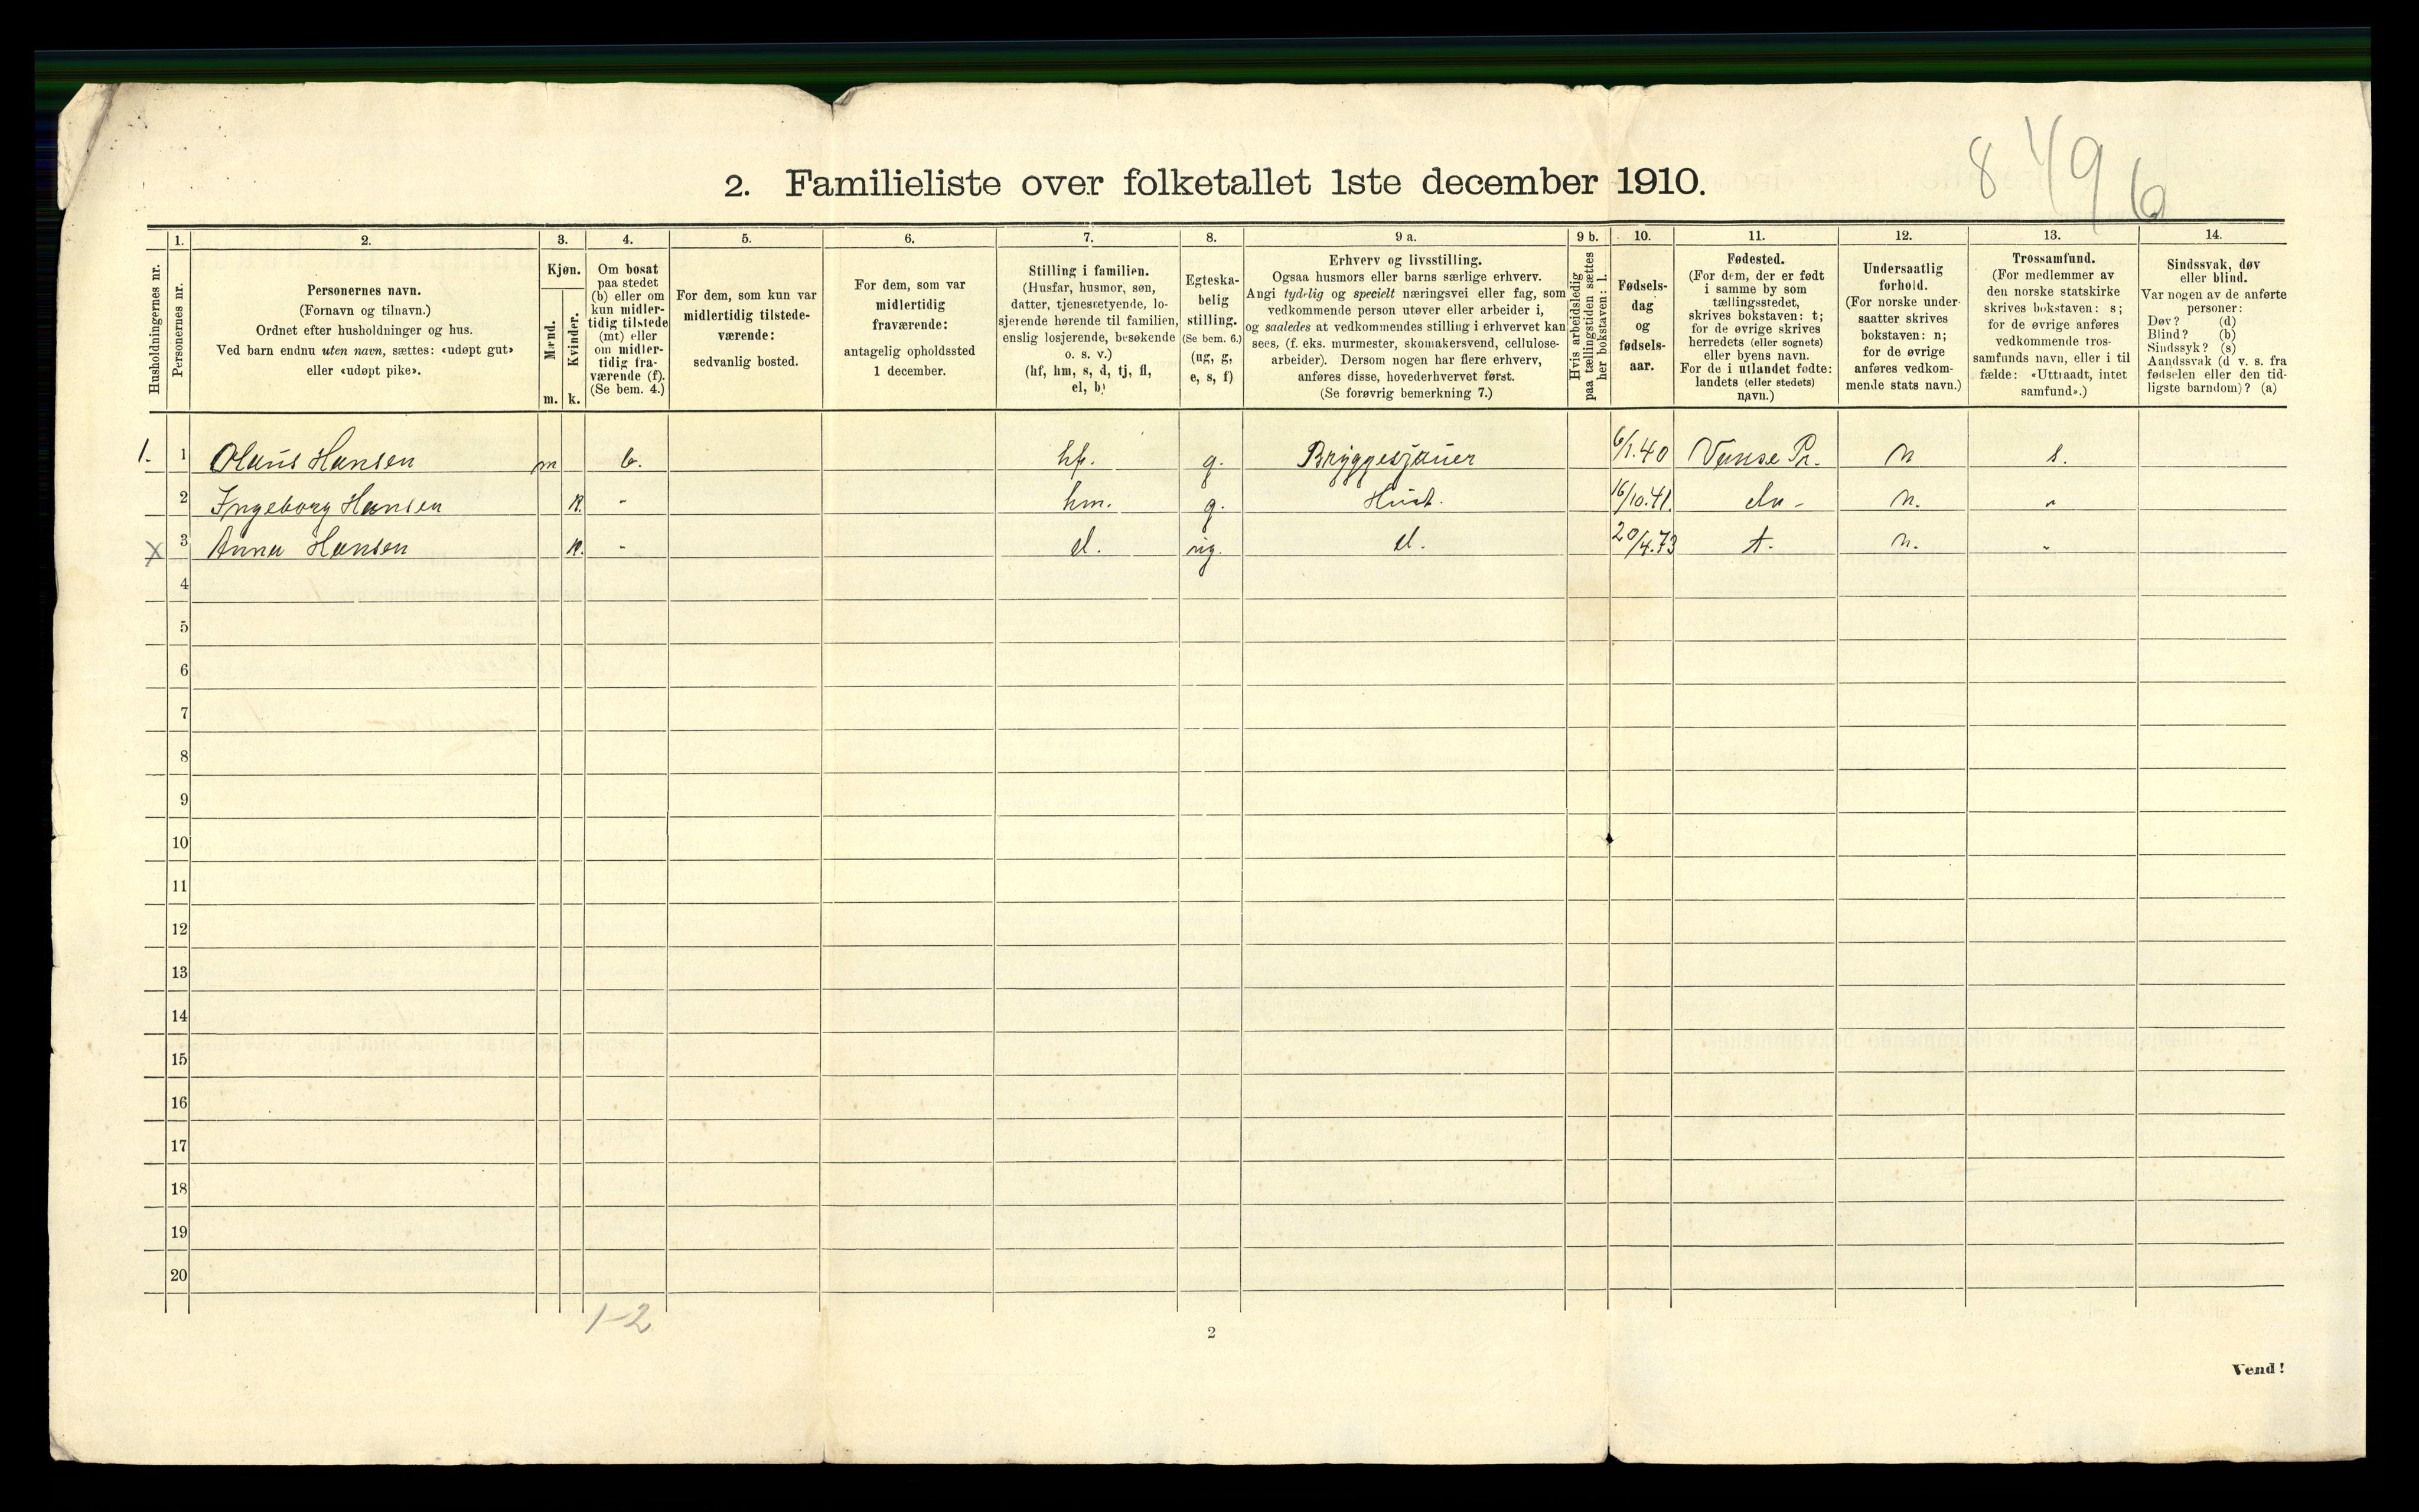 8 496
2. Familieliste over folketallet 1ste december 1910.
Husholdningernes nr.
1. Personernes nr.
2. Personernes navn.
(Fornavn og tilnavn.)
Ordnet efter husholdninger og hus.
Ved barn endnu uten navn, sættes: «udøpt gut»
eller «udøpt pike».
3. Kjøn.
Mænd. m.
Kvinder. k.
4. Om bosat
paa stedet
(b) eller om
kun midler-
tidig tilstede
(mt) eller
om midler-
tidig fra-
værende (f).
(Se bem. 4.)
5. For dem, som kun var
midlertidig tilstede-
værende:
sedvanlig bosted.
6. For dem, som var
midlertidig
fraværende:
antagelig opholdssted
1 december.
7. Stilling i familien.
(Husfar, husmor, søn,
datter, tjenestetyende, lo-
sjerende hørende til familien,
enslig losjerende, besøkende
o. s. v.)
(hf, hm, s, d, tj, fl,
el, b)
8. Egteska-
belig
stilling.
(Se bem. 6.)
(ug, g,
e, s, f)
9 a. Erhverv og livsstilling.
Ogsaa husmors eller barns særlige erhverv.
Angi tydelig og specielt næringsvei eller fag, som
vedkommende person utøver eller arbeider i,
og saaledes at vedkommendes stilling i erhvervet kan
sees, (f. eks. murmester, skomakersvend, cellulose-
arbeider). Dersom nogen har flere erhverv,
anføres disse, hovederhvervet først.
(Se forøvrig bemerkning 7.)
9 b. Hvis arbeidsledig
paa tællingstiden sættes
her bokstaven: l.
10. Fødsels-
dag
og
fødsels-
aar.
11. Fødested.
(For dem, der er født
i samme by som
tællingsstedet,
skrives bokstaven: t;
for de øvrige skrives
herredets (eller sognets)
eller byens navn.
For de i utlandet fødte:
landets (eller stedets)
navn.)
12. Undersaatlig
forhold.
(For norske under-
saatter skrives
bokstaven: n;
for de øvrige
anføres vedkom-
mende stats navn.)
13. Trossamfund.
(For medlemmer av
den norske statskirke
skrives bokstaven: s;
for de øvrige anføres
vedkommende tros-
samfunds navn, eller i til-
fælde: «Uttraadt, intet
samfund».)
14. Sindssvak, døv
eller blind.
Var nogen av de anførte
personer:
Døv? (d)
Blind? (b)
Sindssyk? (s)
Aandssvak (d v. s. fra
fødselen eller den tid-
ligste barndom)? (a)
1. 1 Olaus Hansen m b. hf. g. Bryggesjauer 6/1.40 Vanse Pr. n s.
2 Ingeborg Hansen k. - hm. g. Hust. 16/10.41. do - n. "
X 3 Anna Hansen k. - d. ug. d. 20/4.73 t. n. "
4
5
6
7
8
9
10
11
12
13
14
15
16
17
18
19
20
1-2
2
Vend!